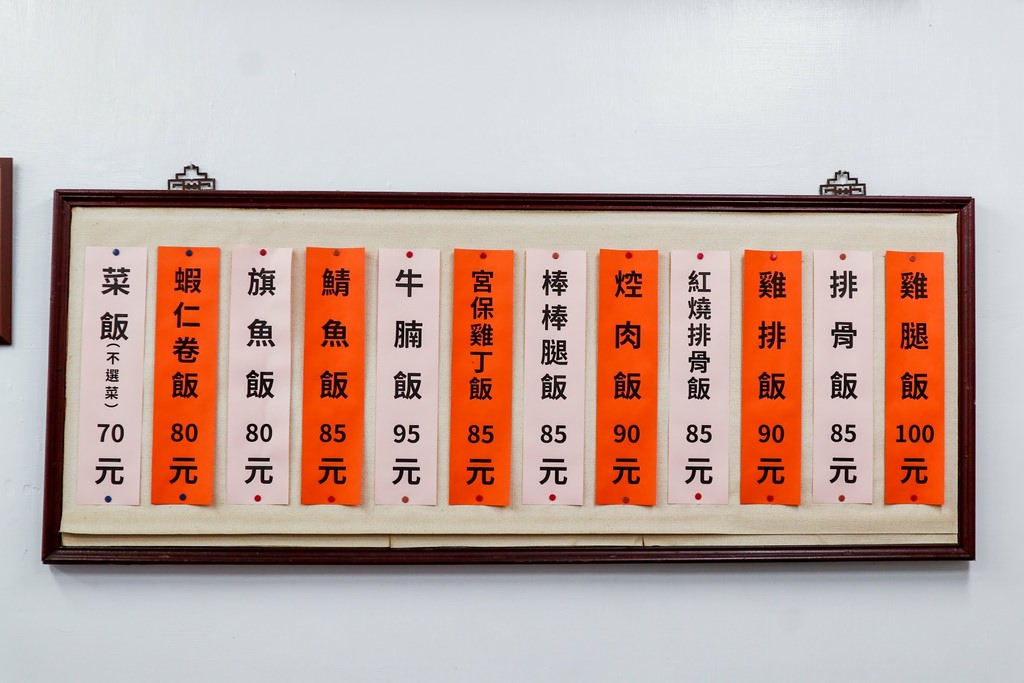 雞腿飯100元
排骨飯85元
雞排飯90元
紅燒排骨飯85元
焢肉飯90元
棒棒腿飯85元
宮保雞丁飯85元
牛腩飯95元
鯖魚飯85元
旗魚飯80元
蝦仁卷飯80元
菜飯(不選菜)70元